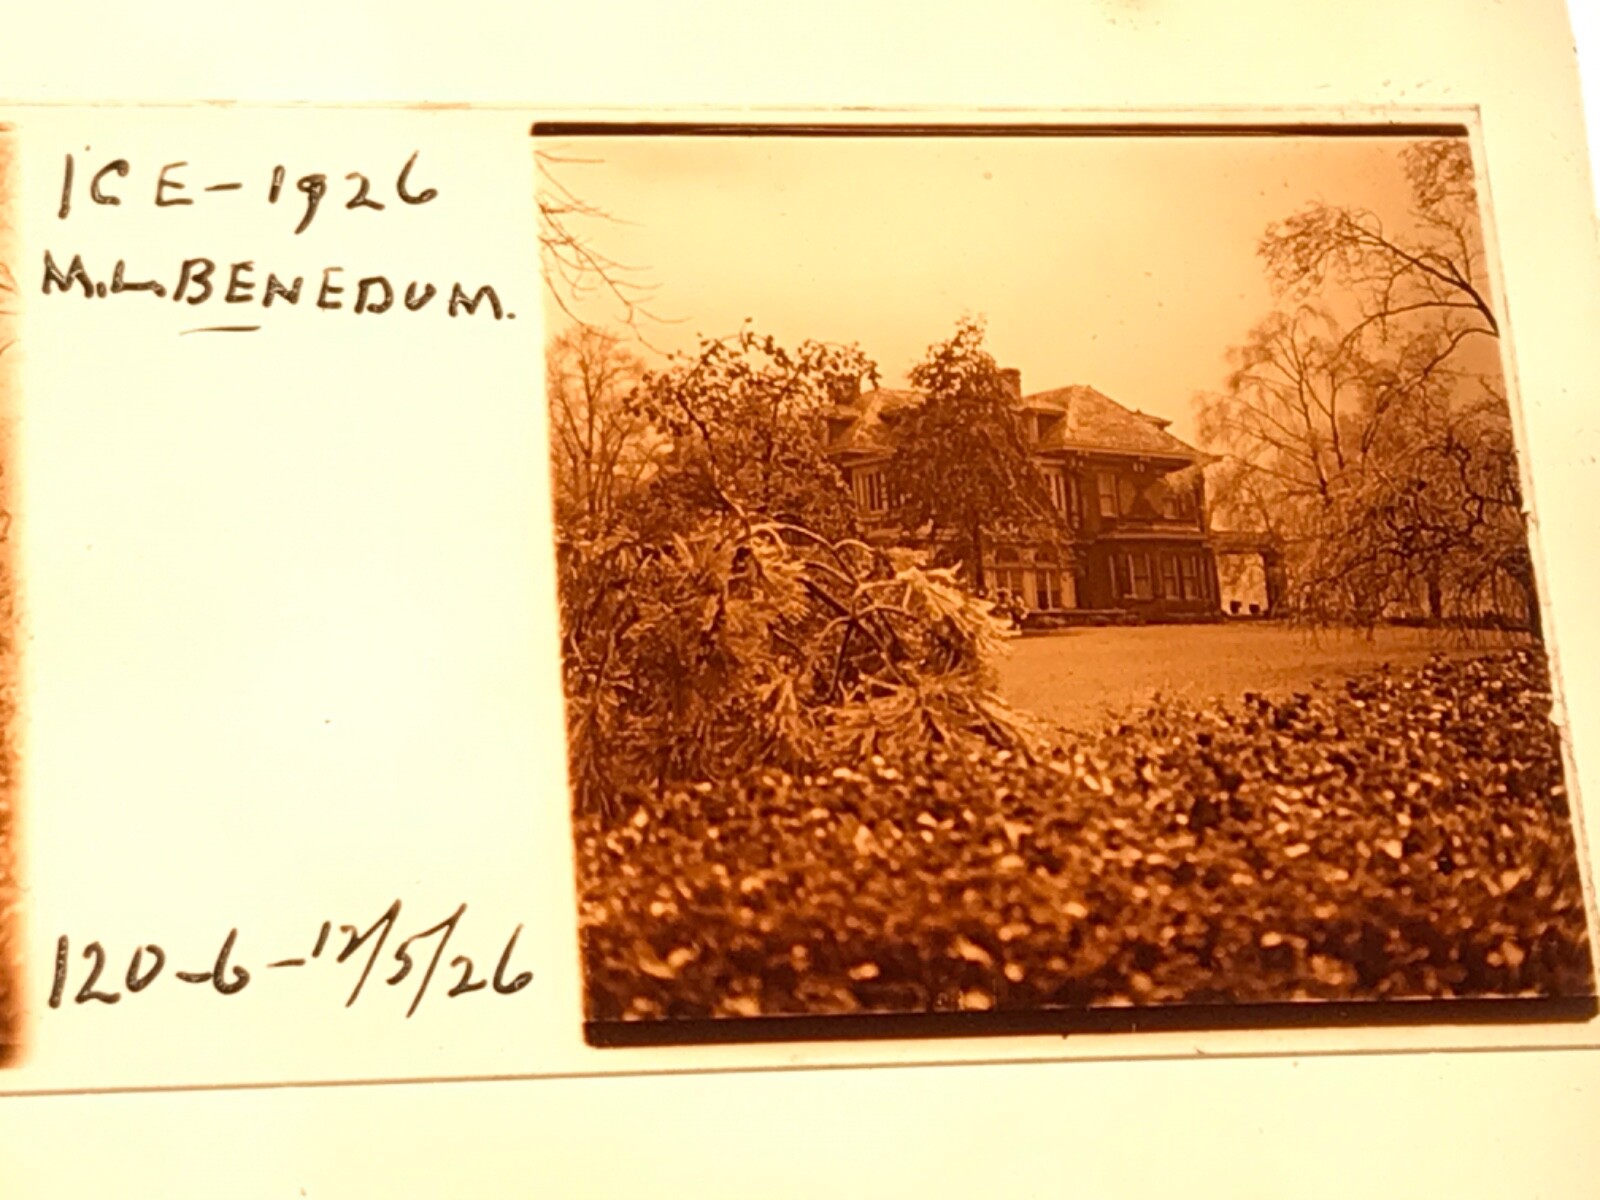 ICE-1926
M.L.BENEDUM.
120-6-12/5/26